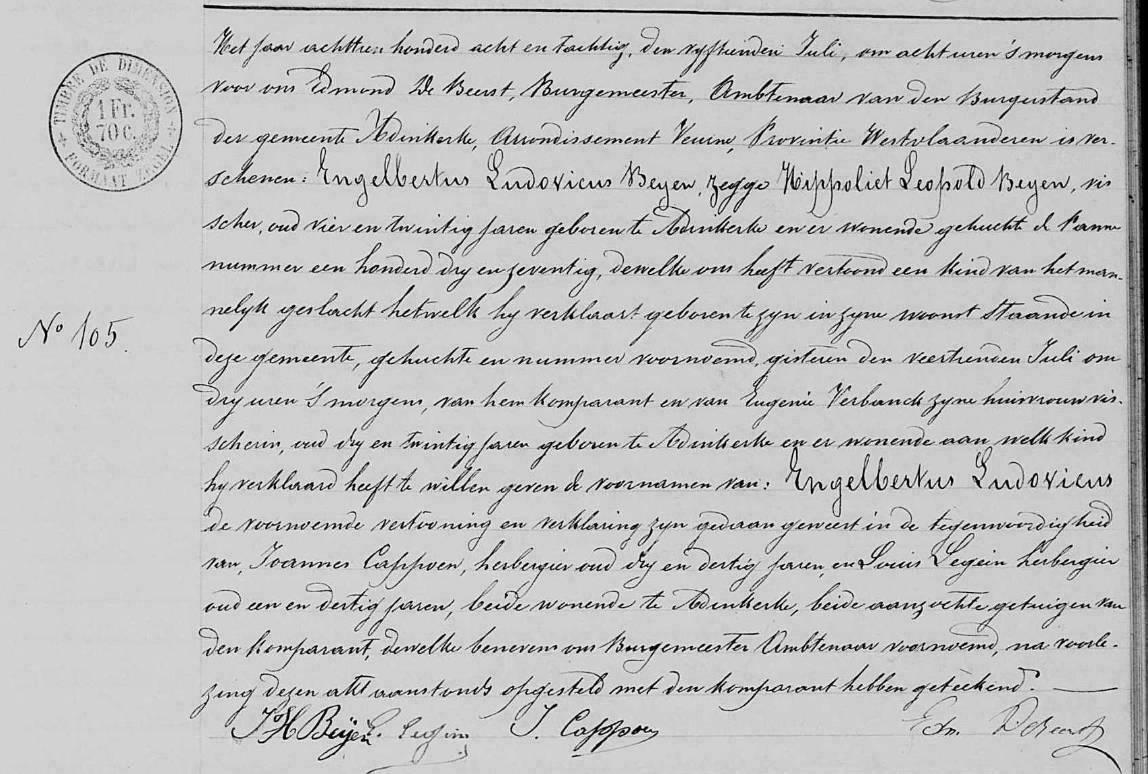 TIMBRE DE DIMENSION
1 Fr.
70 C.
FORMAAT ZEGEL
Het jaar achttien honderd acht en tachtig, den vyftienden Juli, om acht uren 's morgens
voor ons Edmond De Beerst, Burgemeester, Ambtenaar van den Burgerstand
der gemeente Adinkerke, Arrondissement Veurne, Provintie Westvlaanderen is ver-
schenen: Engelbertus Ludovicus Beyen, zegge Hippoliet Leopold Beyen, vis
scher, oud vier en twintig jaren geboren te Adinkerke en er wonende gehuchte de Panne
nummer een honderd dry en zeventig, dewelke ons heeft vertoond een kind van het man-
nelyk geslacht hetwelk hy verklaart geboren te zyn in zyne woonst staande in
N° 105.
deze gemeente, gehuchte en nummer voornoemd, gisteren den veertienden Juli om
dry uren 's morgens, van hem komparant en van Eugenie Verbanck zyne huisvrouw vis-
scherin, oud dry en twintig jaren geboren te Adinkerke en er wonende aan welk kind
hy verklaard heeft te willen geven de voornamen van: Engelbertus Ludovicus
de voornoemde vertooning en verklaring zyn gedaan geweest in de tegenwoordigheid
van, Joannes Cappoen, herbergier oud dry en dertig jaren, en Louis Legein herbergier
oud een en dertig jaren, beide wonende te Adinkerke, beide aanzochte getuigen van
den komparant, dewelke benevens ons Burgemeester Ambtenaar voornoemd, na voorle-
zing dezen akt aanstonds opgesteld met den komparant hebben geteekend.
J H Beijen L. Legein J. Cappoen Edm. De Beerst